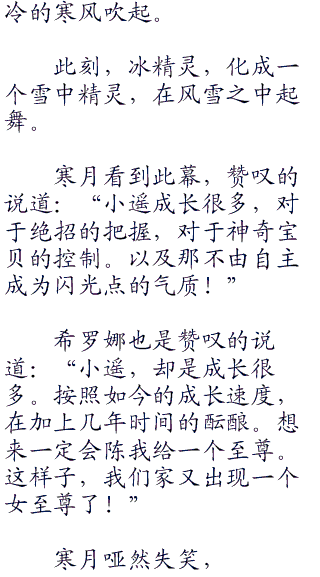 冷的寒风吹起。
此刻，冰精灵，化成一
个雪中精灵，在风雪之中起
舞。
寒月看到此幕，赞叹的
说道：“小遥成长很多，对
于绝招的把握，对于神奇宝
贝的控制。以及那不由自主
成为闪光点的气质！”
希罗娜也是赞叹的说
道：“小遥，却是成长很
多。按照如今的成长速度，
在加上几年时间的酝酿。想
来一定会陈我给一个至尊。
这样子，我们家又出现一个
女至尊了！”
寒月哑然失笑，